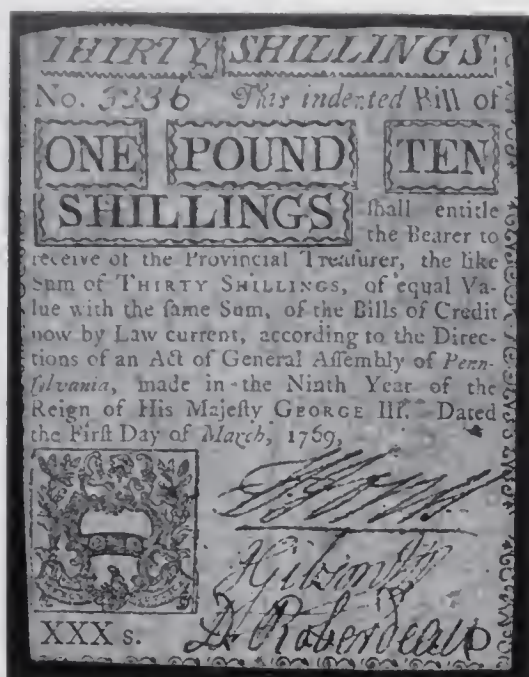 THIRTY SHILLINGS
No. 5336 This indented Bill of
ONE POUND TEN
SHILLINGS ſhall entitle
the Bearer to
receive of the Provincial Treaſurer, the like
Sum of THIRTY SHILLINGS, of equal Va-
lue with the ſame Sum, of the Bills of Credit
now by Law current, according to the Direc-
tions of an Act of General Aſſembly of Penn-
ſilvania, made in the Ninth Year of the
Reign of His Majeſty GEORGE III. Dated
the Firſt Day of March, 1769,
XXX s. D Roberdeau